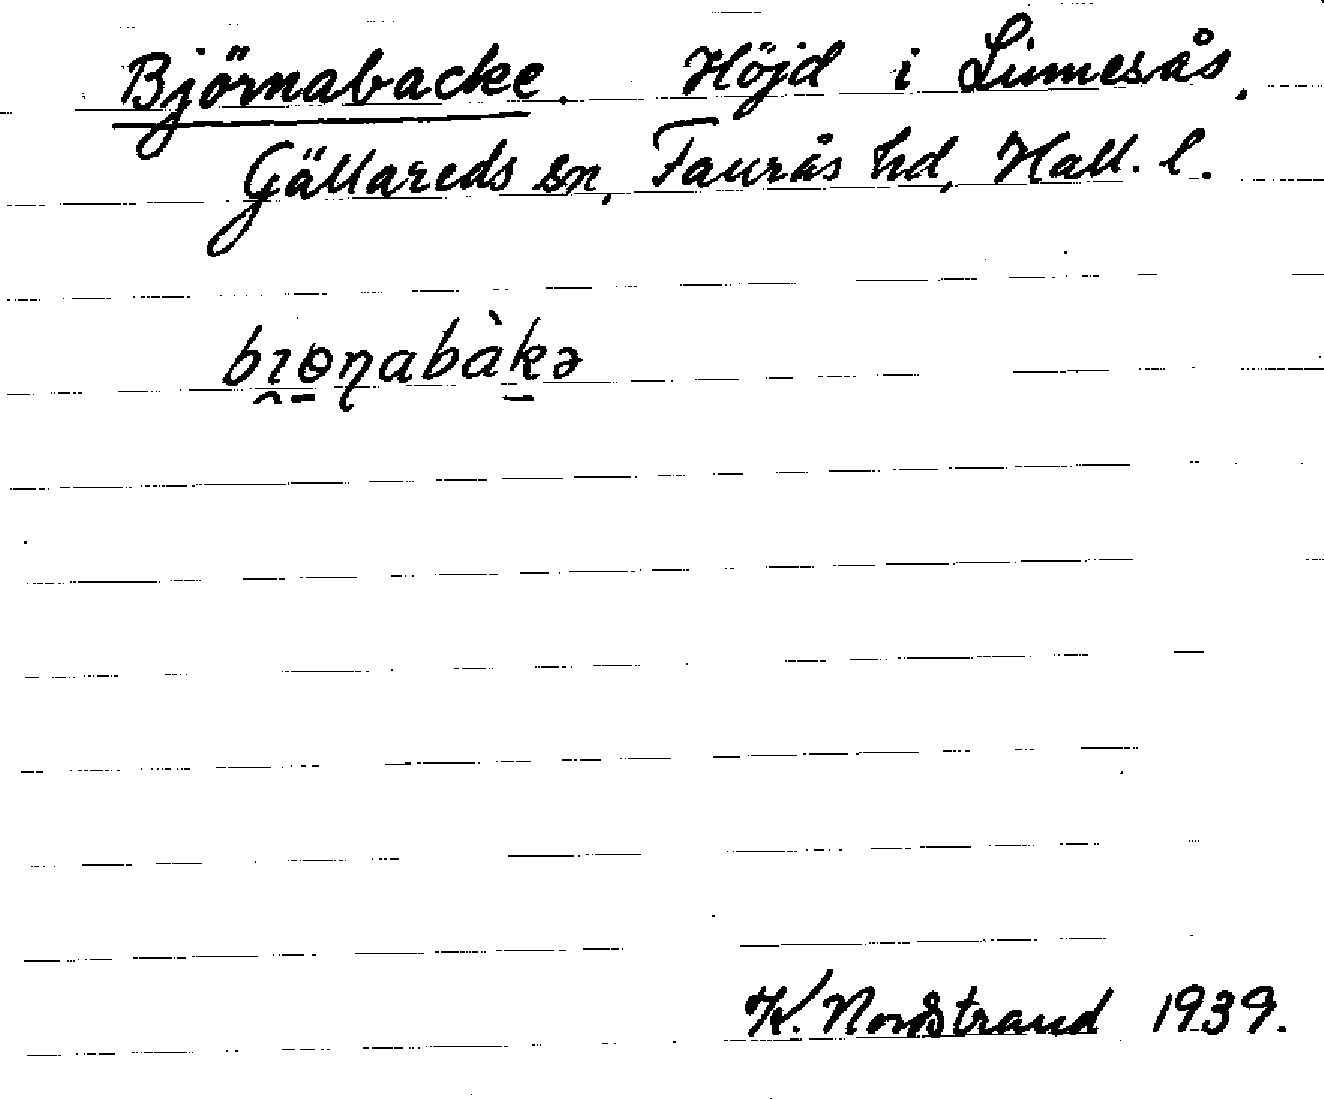 Björnabacke. Höjd i Linnesås.
Gällareds sn, Faurås hd, Hall. l.
bɪ̯ɵ̠ɳabàk̠ə
K. Nordstrand 1939.